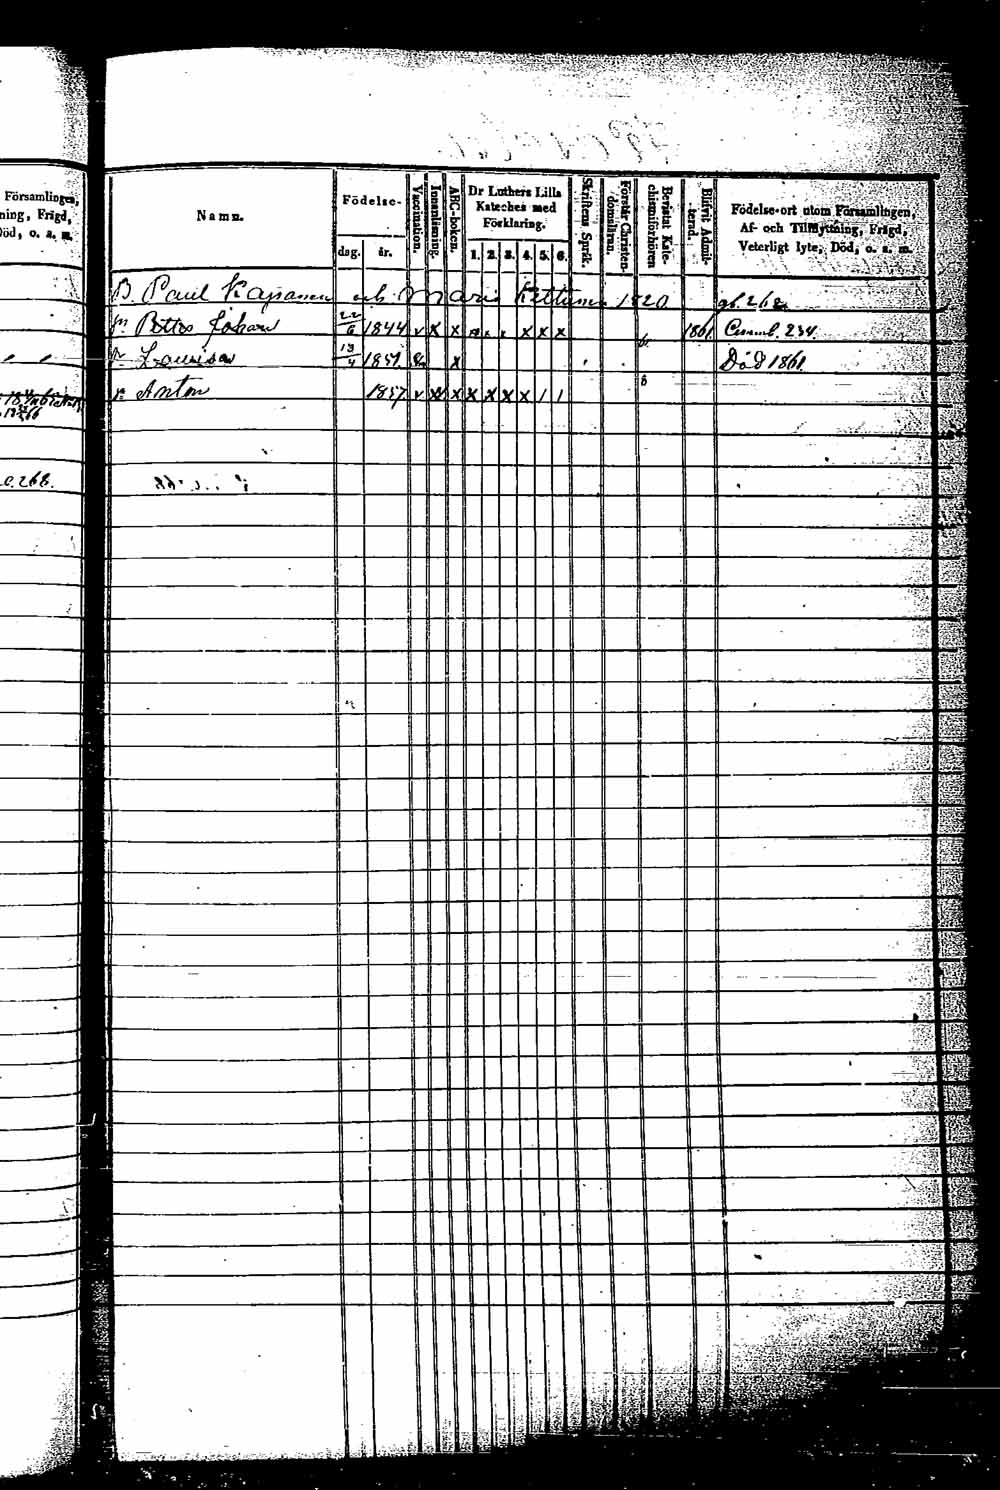 Församlingen,
ning, Frägd,
Död, o. s. m.
c. 268.
Namn.
Födelse-
dag. år.
Vaccination.
Innanläsning.
ABC-boken.
Dr Luthers Lilla
Kateches med
Förklaring.
1. 2. 3. 4. 5. 6.
Skriftens Språk.
Förstår Christen-
domsläran.
Bevistat Kate-
chismiförhören
Blifvit Admit-
terad.
Födelse-ort utom Församlingen,
Af- och Tillflyttning, Frägd,
Veterligt lyte, Död, o. s. m.
B. Paul Kajanen och Maria Kettunen 1820 gl. 268
Petter Johan 22/6 1844 v x x x x x 1861 234.
Lovisa 13/4 1851. x Död 1861.
Anton 1857 v x x x x x x / /